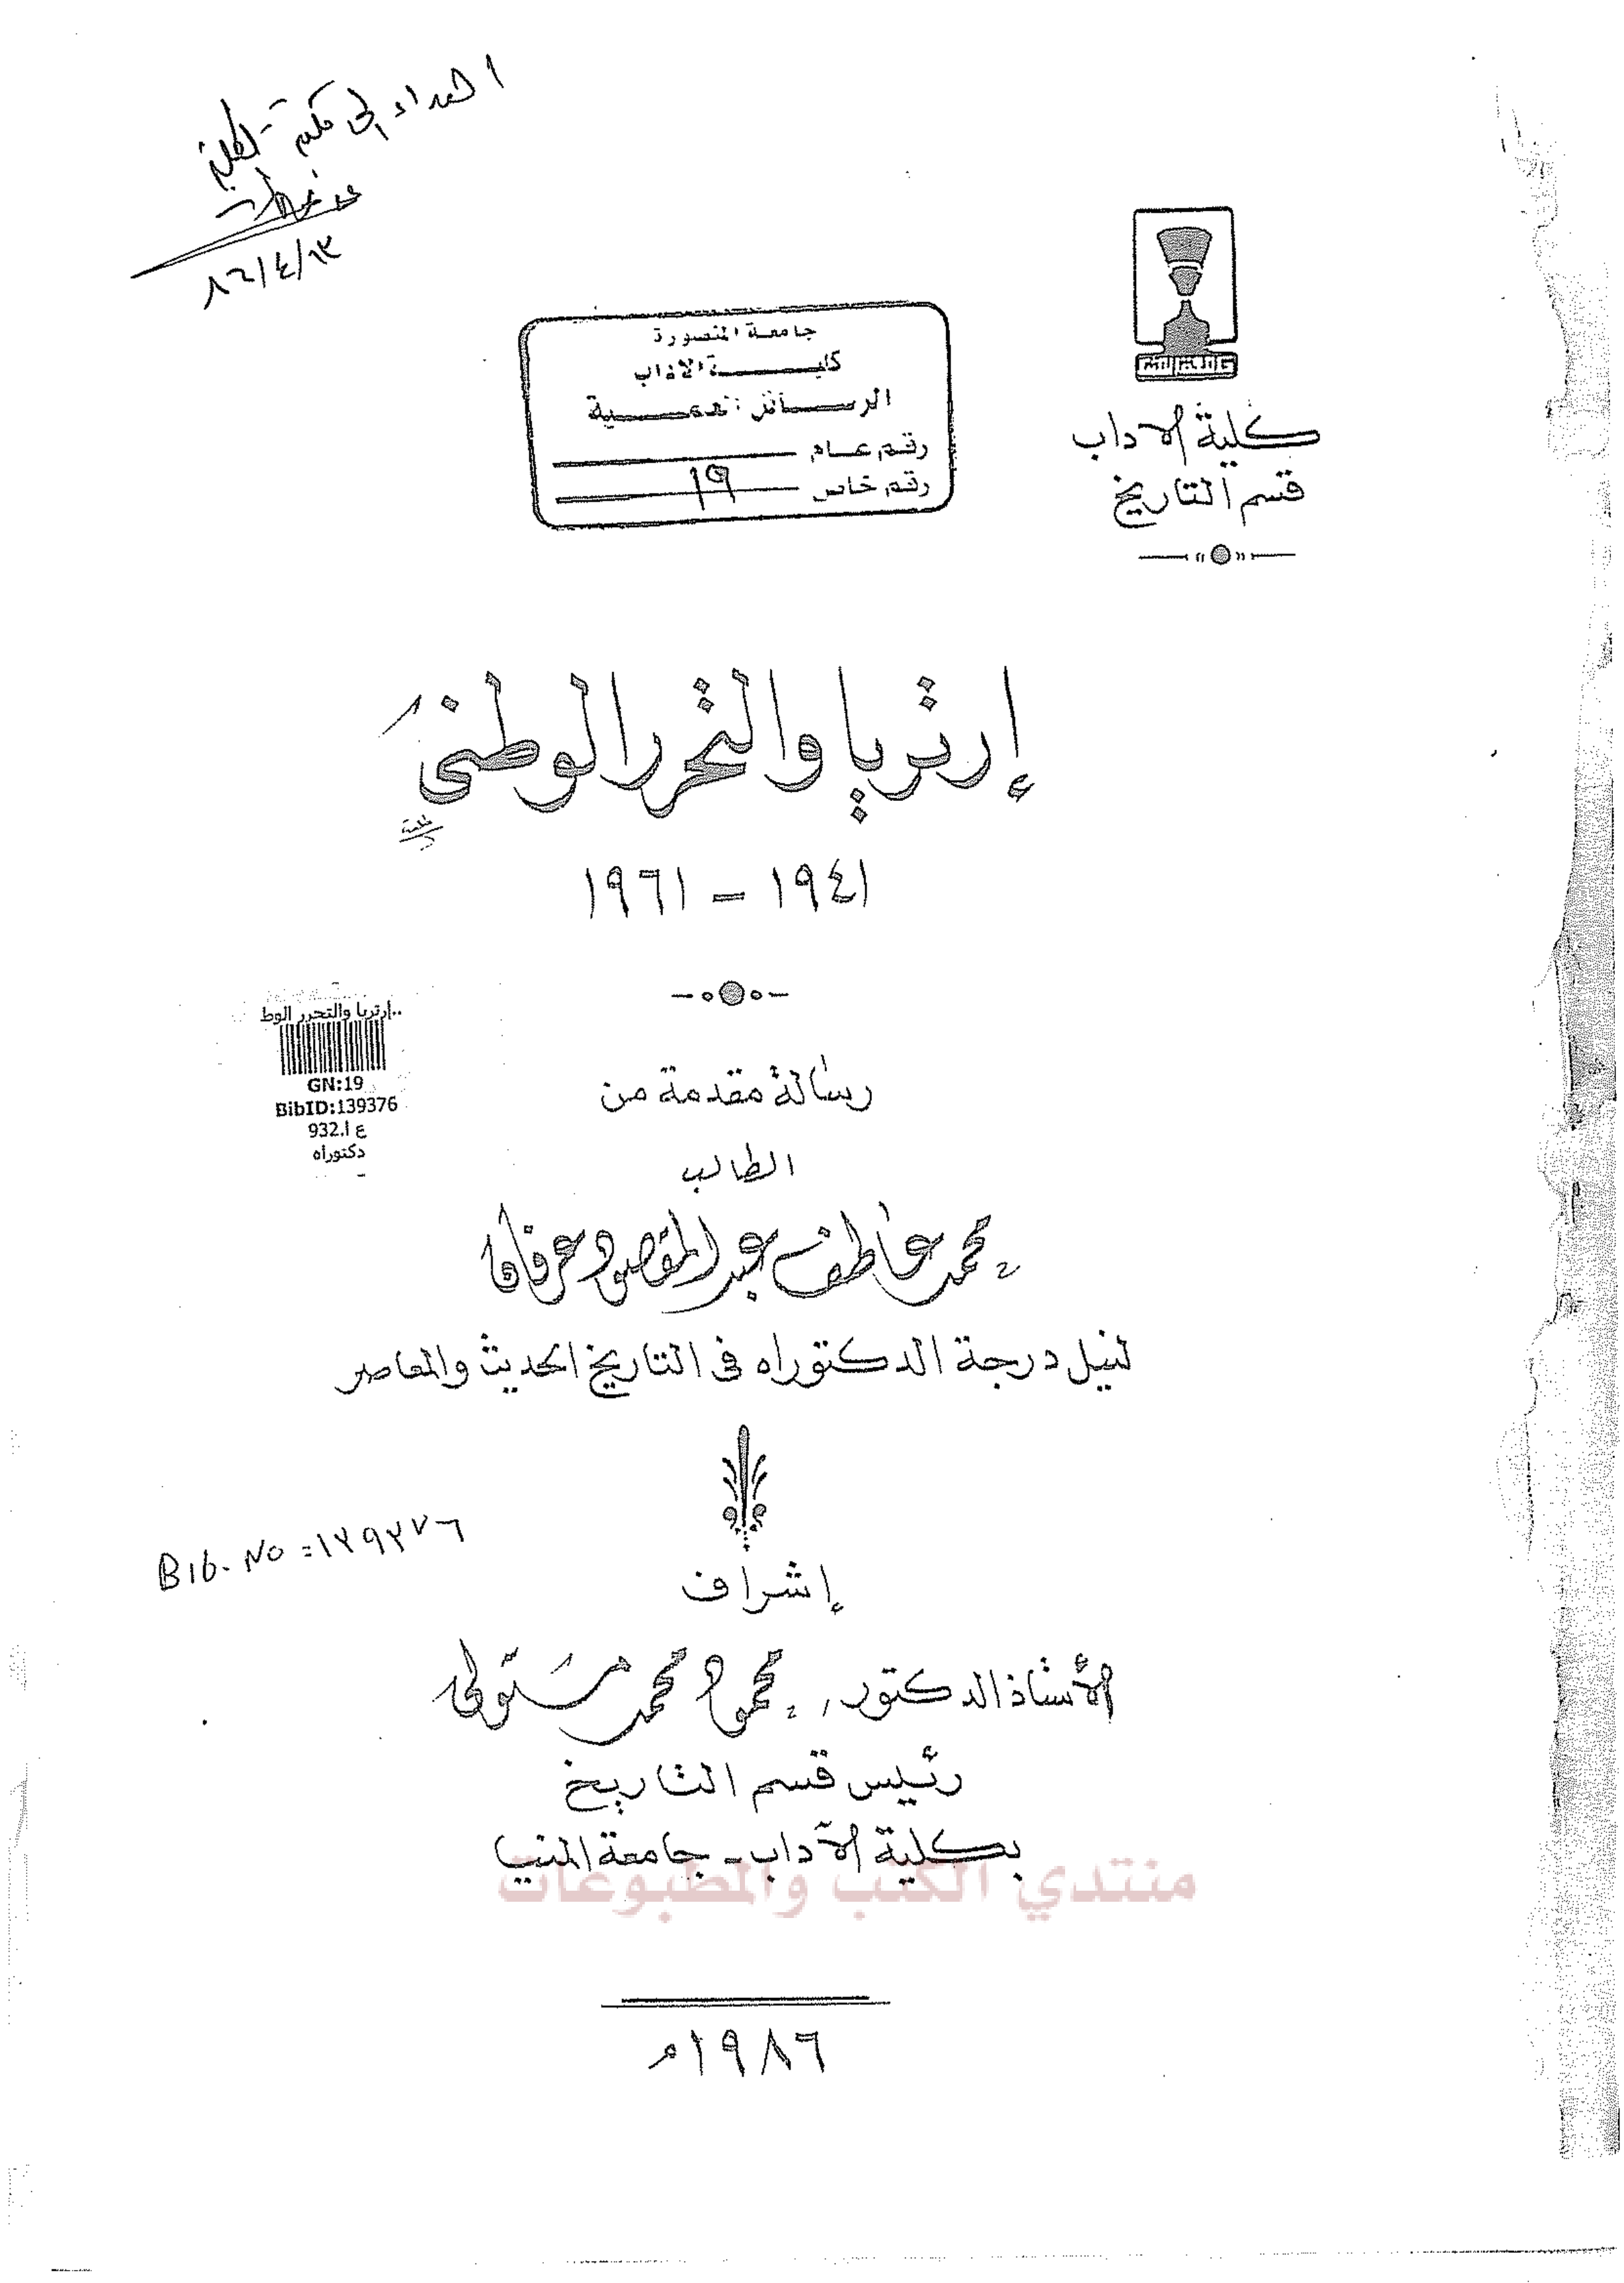 اهداء إلى مكتبة الكلية
جامعة المنصورة
كلية الآداب
الرسائل العلمية
رقم عام
رقم خاص ١٩
كلية الاداب
قسم التاريخ
إرتريا والتحرر الوطنى
١٩٤١ - ١٩٦١
إرتريا والتحرر الوط..
GN:19
BibID:139376
932.ع ا
دكتوراه
رسالة مقدمة من
الطالب
محمد عاطف عبد المقصود عرفان
لنيل درجة الدكتوراه فى التاريخ الحديث والمعاصر
Bib. No = ١٣٩٣٧٦
إشراف
الأستاذ الدكتور / محمود محمد متولى
رئيس قسم التاريخ
بكلية الآداب - جامعة المنيا
منتدي الكتب والمطبوعات
١٩٨٦م